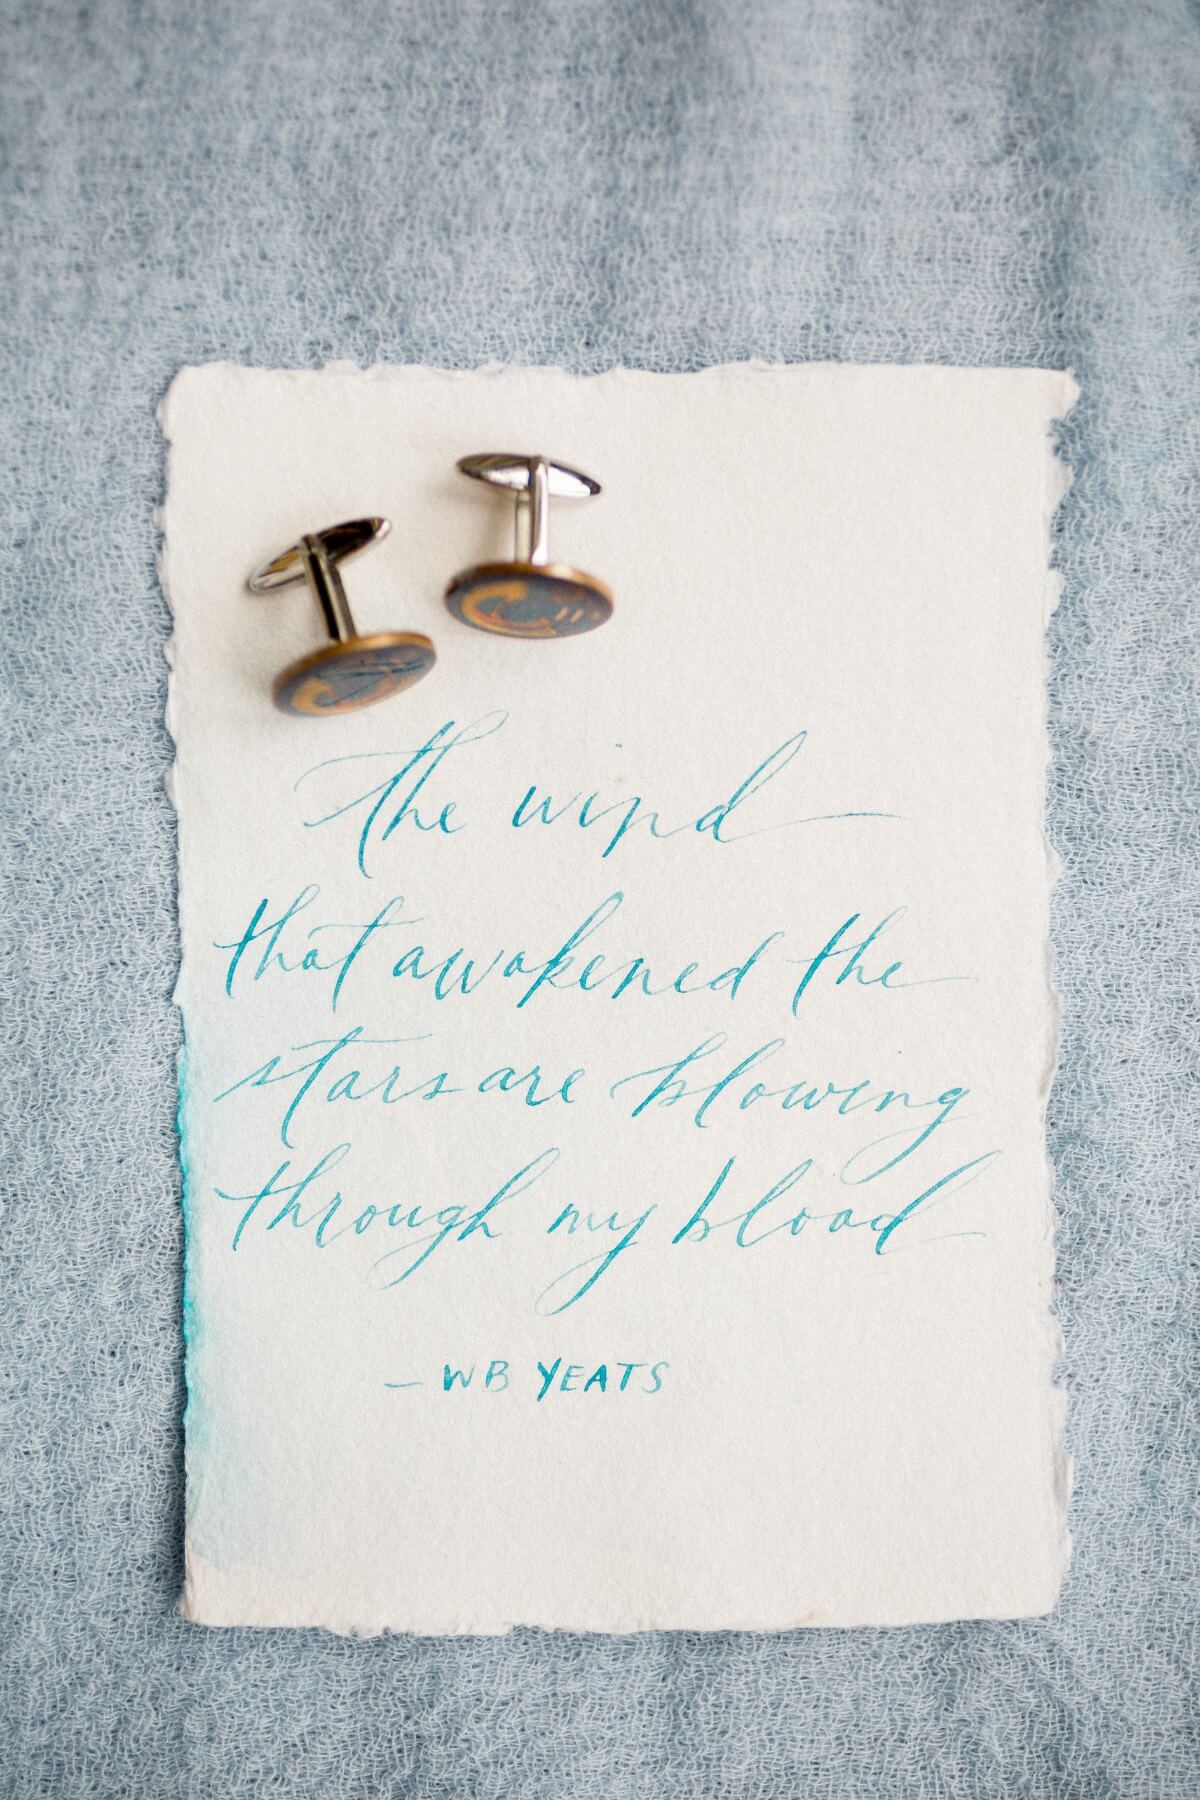 the wind
that awakened the
stars are blowing
through my blood
– WB YEATS